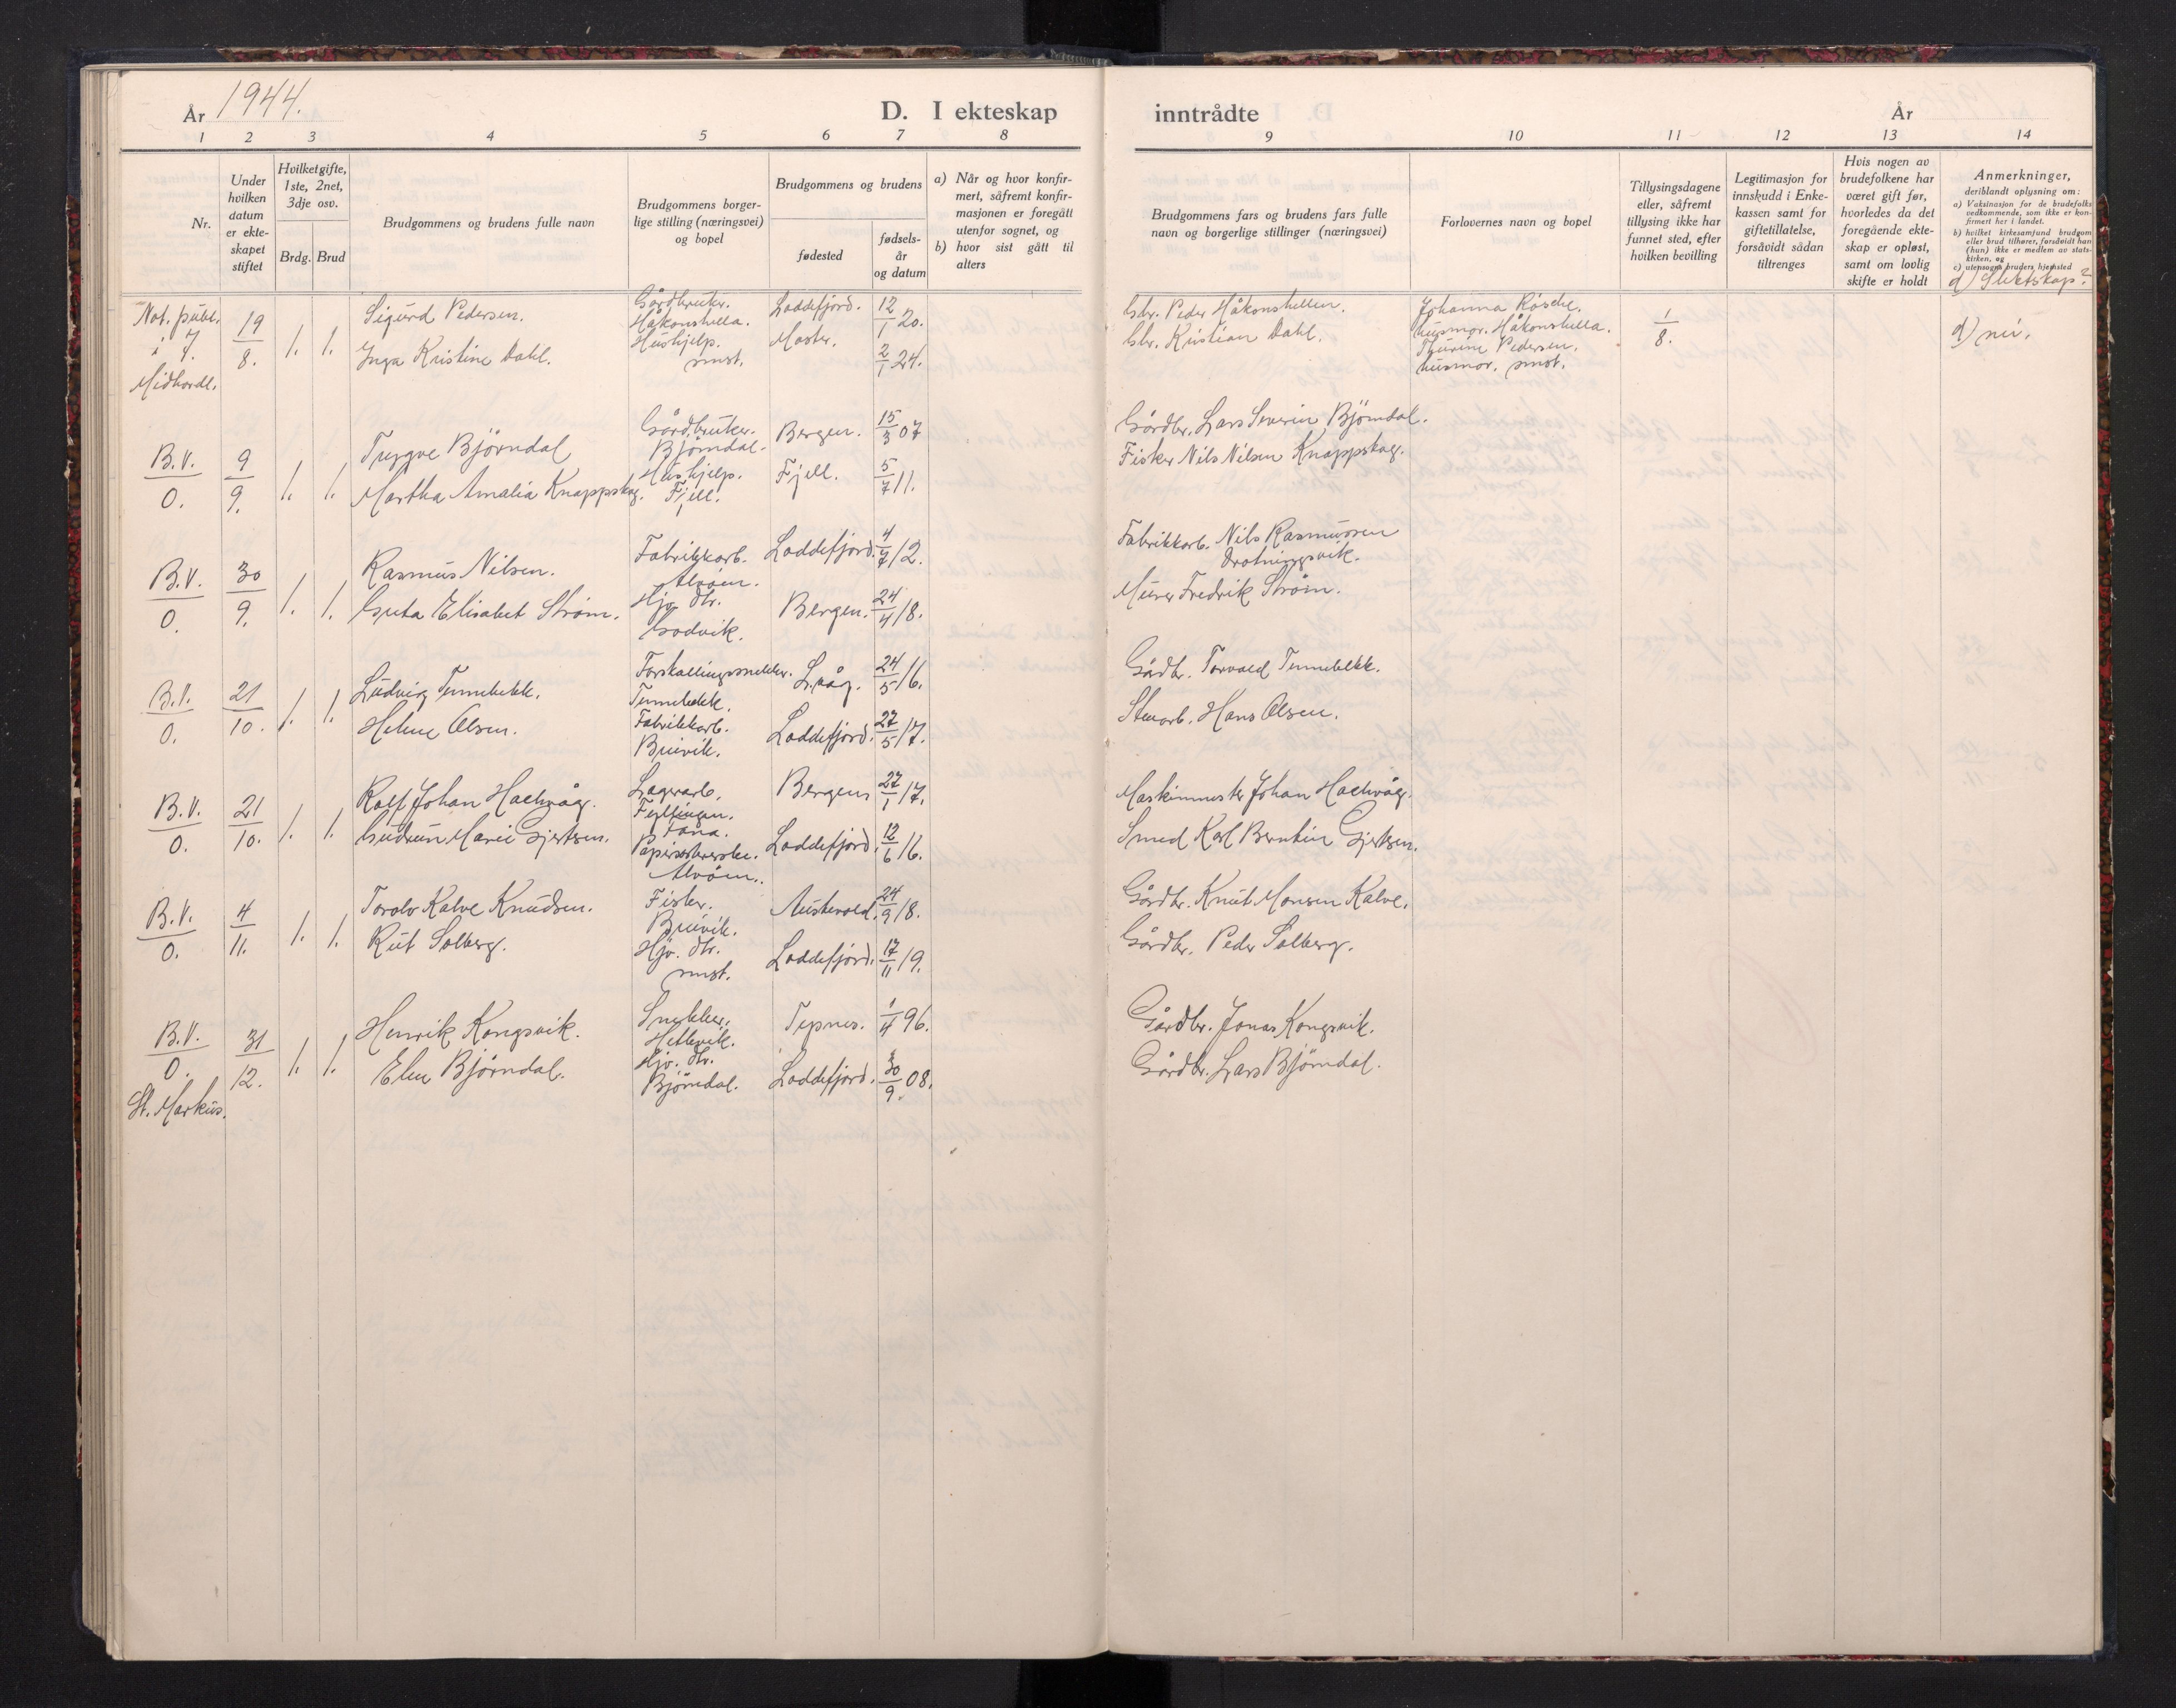 År 1944.
D. I ekteskap
inntrådte
År
1 2 3 4 5 6 7 8
9 10 11 12 13 14
Nr.
Under
hvilken
datum
er ekte-
skapet
stiftet
Hvilket gifte,
1ste, 2net,
3dje osv.
Brdg. Brud
Brudgommens og brudens fulle navn
Brudgommens borger-
lige stilling (næringsvei)
og bopel
Brudgommens og brudens
fødested
fødsels-
år
og datum
a) Når og hvor konfir-
mert, såfremt konfir-
masjonen er foregått
utenfor sognet, og
b) hvor sist gått til
alters
Brudgommens fars og brudens fars fulle
navn og borgerlige stillinger (næringsvei)
Forlovernes navn og bopel
Tillysingsdagene
eller, såfremt
tillysing ikke har
funnet sted, efter
hvilken bevilling
Legitimasjon for
innskudd i Enke-
kassen samt for
giftetillatelse,
forsåvidt sådan
tiltrenges
Hvis nogen av
brudefolkene har
været gift før,
hvorledes da det
foregående ekte-
skap er opløst,
samt om lovlig
skifte er holdt
Anmerkninger,
deriblandt oplysning om:
a) Vaksinasjon for de brudefolks
vedkommende, som ikke er kon-
firmert her i landet.
b) hvilket kirkesamfund brudgom
eller brud tilhører, forsåvidt han
(hun) ikke er medlem av stats-
kirken, og
c) utensogns bruders hjemsted
d) Slektskap?
Not. publ.
i 7.
Midhordl.
19/8. 1. 1.
Sigurd Pedersen.
Inga Kristine Dahl.
Gårdbruker.
Håkonshella.
Hushjelp.
smst.
Loddefjord. 12/1 20.
Moster. 2/1 24.
Gbr. Peder Håkonshellen.
Gbr. Kristian Dahl.
Johanna Røsche.
husmor. Håkonshella.
Thurine Pedersen.
husmor. smst.
1/8.
d) nei.
B.V.
0.
9/9. 1. 1.
Trygve Bjørndal
Martha Amalia Knappskog.
Gårdbruker.
Bjørndal.
Hushjelp.
Fjell.
Bergen. 15/3 07
Fjell. 5/7 11.
Gårdbr. Lars Severin Bjørndal.
Fisker Nils Nilsen Knappskog.
B.V.
0.
30/9. 1. 1.
Rasmus Nilsen.
Guta Elisabet Strøm.
Fabrikkarb.
Alvøen.
Hjv. dtr.
Godvik.
Loddefjord. 4/7 12.
Bergen. 24/4 18.
Fabrikkarb. Nils Rasmussen
Drotningsvik.
Murer Fredrik Strøm.
B.V.
0.
21/10. 1. 1.
Ludvig Tennebekk.
Helene Olsen.
Forskallingssnekker.
Tennebekk.
Fabrikkarb.
Breivik.
L.våg. 24/5 16.
Loddefjord. 27/5 17.
Gårdbr. Torvald Tennebekk.
Stenarb. Hans Olsen.
B.V.
0.
21/10. 1. 1.
Rolf Johan Hachvåg.
Gudrun Marie Gjertsen.
Lagerarb.
Fyllingen.
Fana.
Alvøen.
Bergen 27/1 17.
Loddefjord. 12/6 16.
Maskinmester Johan Hachvåg.
Smed Karl Berntin Gjertsen.
B.V.
0.
4/11. 1. 1.
Torolv Kalve Knudsen.
Rut Solberg.
Fisker.
Breivik.
Hjv. dtr.
smst.
Austevold. 24/9 18.
Loddefjord. 17/11 19.
Gårdbr. Knut Monsen Kalve.
Gårdbr. Peder Solberg.
B.V.
0.
St. Markus.
31/12. 1. 1.
Henrik Kongsvik.
Elen Bjørndal.
Snekker.
Hetlevik.
Hjv. dtr.
Bjørndal.
Tysnes. 1/4 96.
Loddefjord. 30/9. 08.
Gårdbr. Jonas Kongsvik.
Gårdbr. Lars Bjørndal.